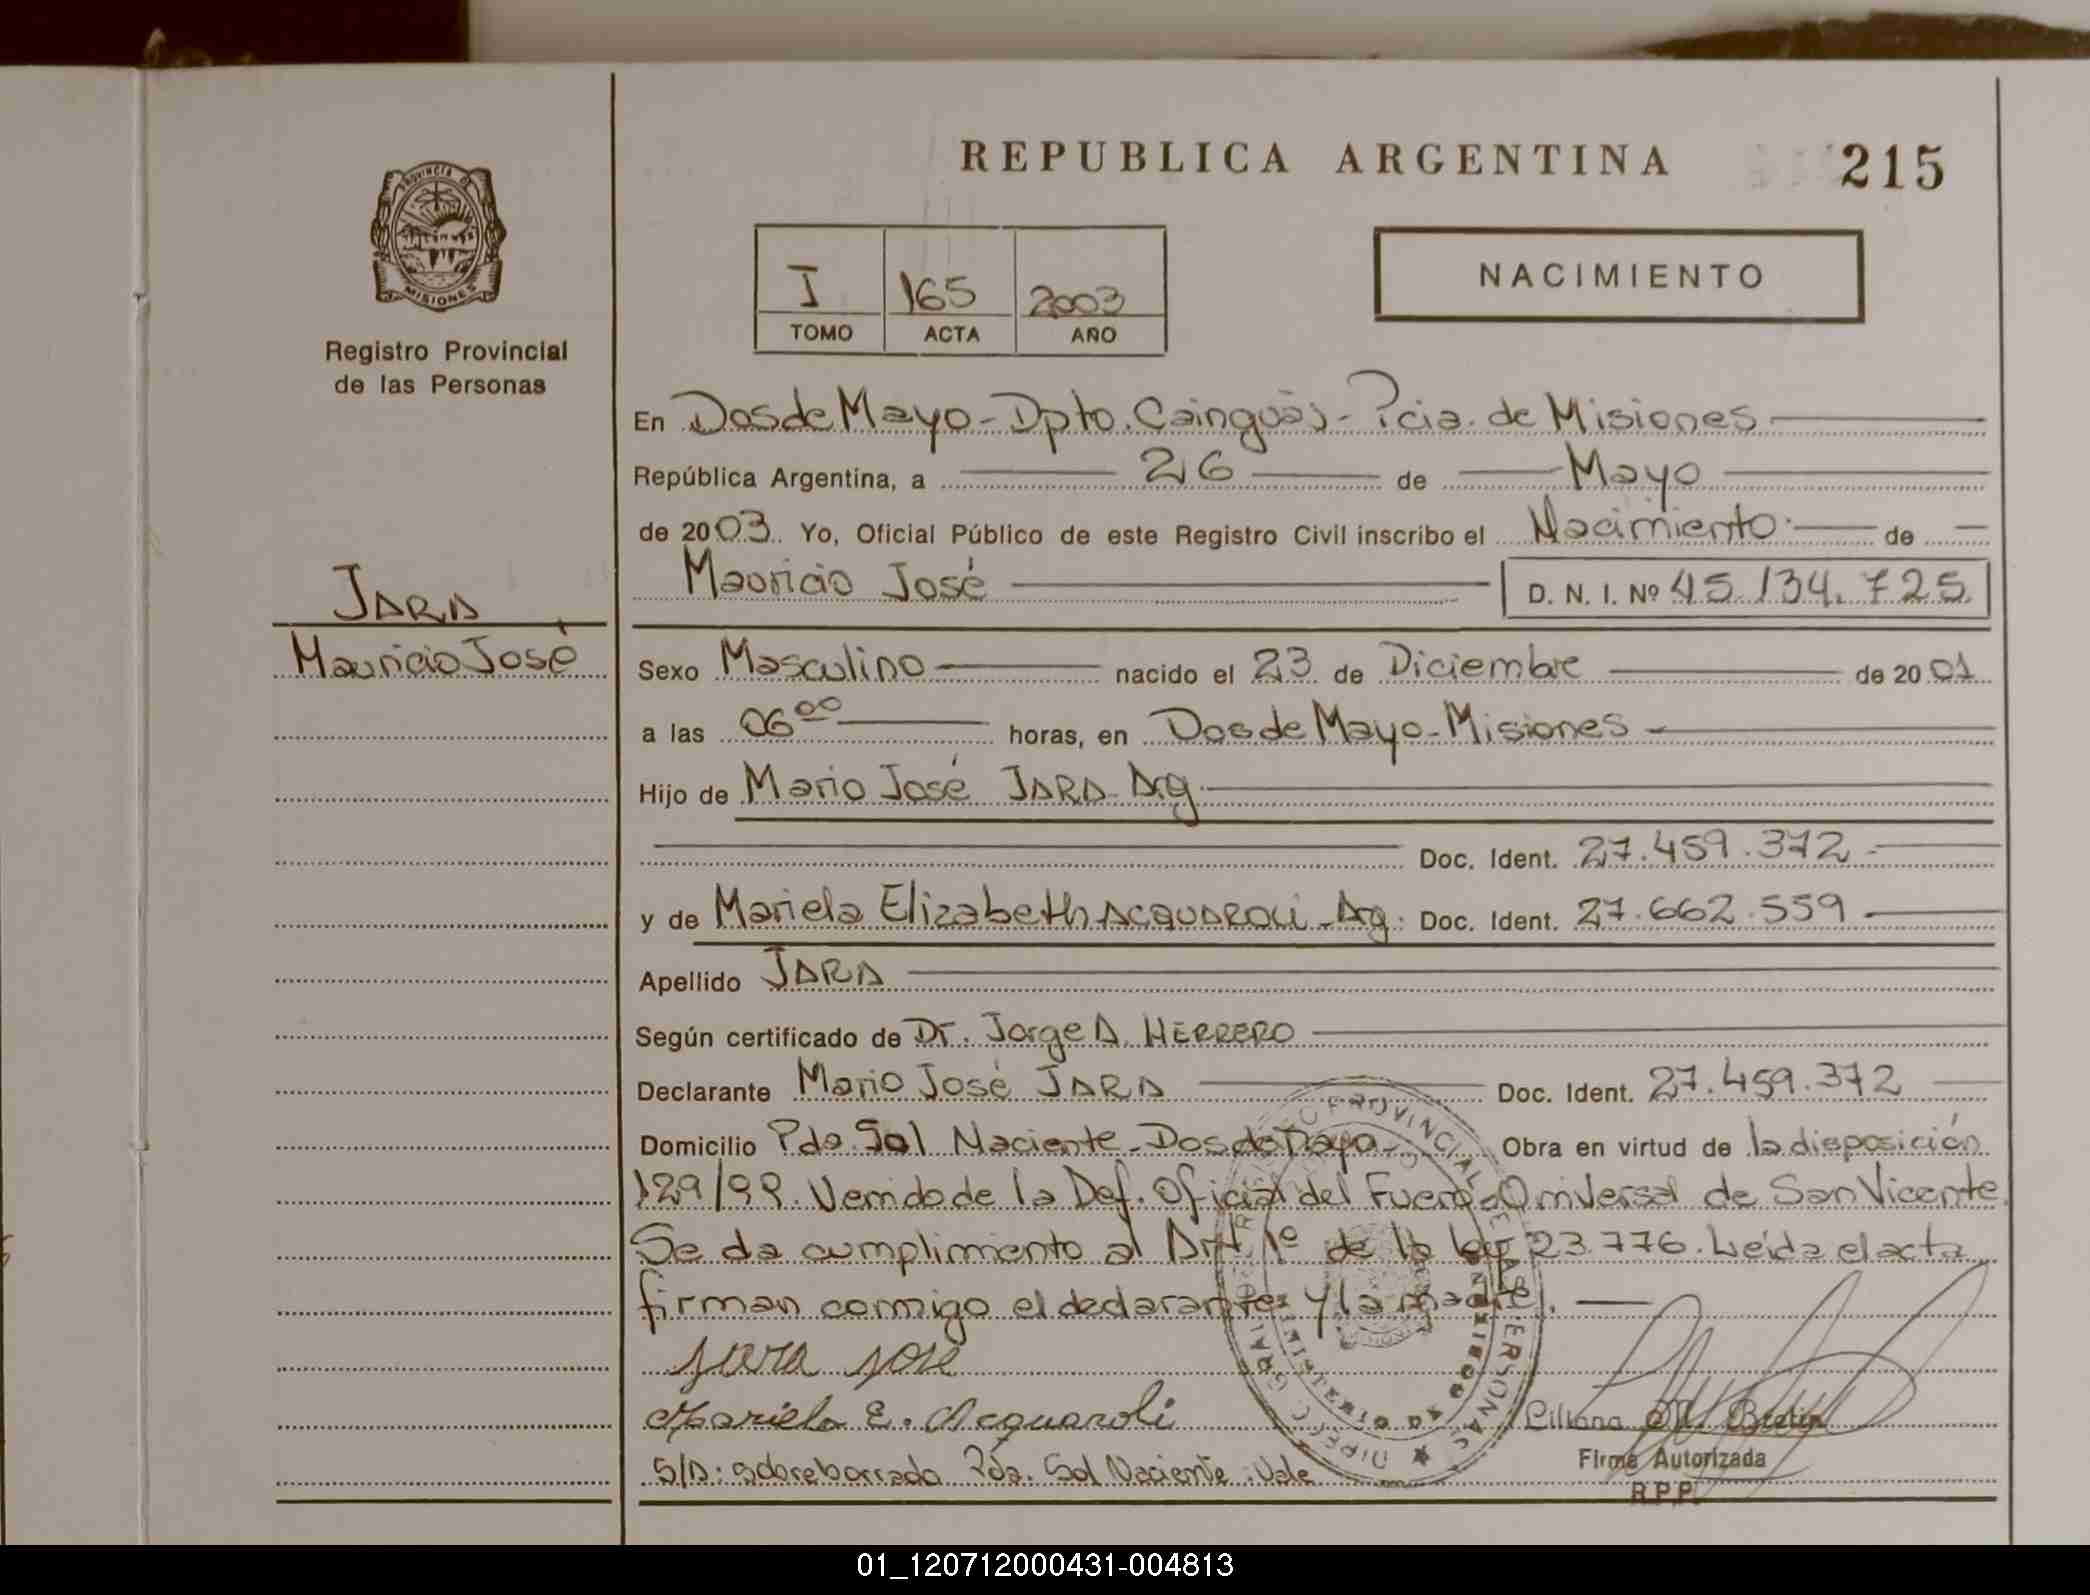 REPUBLICA ARGENTINA 215
PROVINCIA DE
MISIONES
Registro Provincial
de las Personas
I 165 2003
TOMO ACTA AÑO
NACIMIENTO
En Dos de Mayo - Dpto. Cainguás - Pcia. de Misiones
República Argentina, a 26 de Mayo
de 2003. Yo, Oficial Público de este Registro Civil inscribo el Nacimiento de
Mauricio José D. N. I. Nº 45.134.725
JARA
Mauricio José
Sexo Masculino nacido el 23 de Diciembre de 2001
a las 06 00 horas, en Dos de Mayo - Misiones
Hijo de Mario José JARA - Arg.
Doc. Ident. 27.459.372
y de Mariela Elizabeth ACQUAROLI - Arg. Doc. Ident. 27.662.559
Apellido JARA
Según certificado de Dr. Jorge A. HERRERO
Declarante Mario José JARA Doc. Ident. 27.459.372
Domicilio Pda. Sol Naciente - Dos de Mayo - Obra en virtud de la disposición
129/99. Venido de la Def. Oficial del Fuero Universal de San Vicente.
Se da cumplimiento al Art. 1º de la ley 23.776. Leída el acta
firman conmigo el declarante y la madre.
Jara José
Mariela E. Acquaroli
Liliana M.
S/A: sobreborrado Pda. Sol Naciente: Vale
Firma Autorizada
R.P.P.
01_120712000431-004813